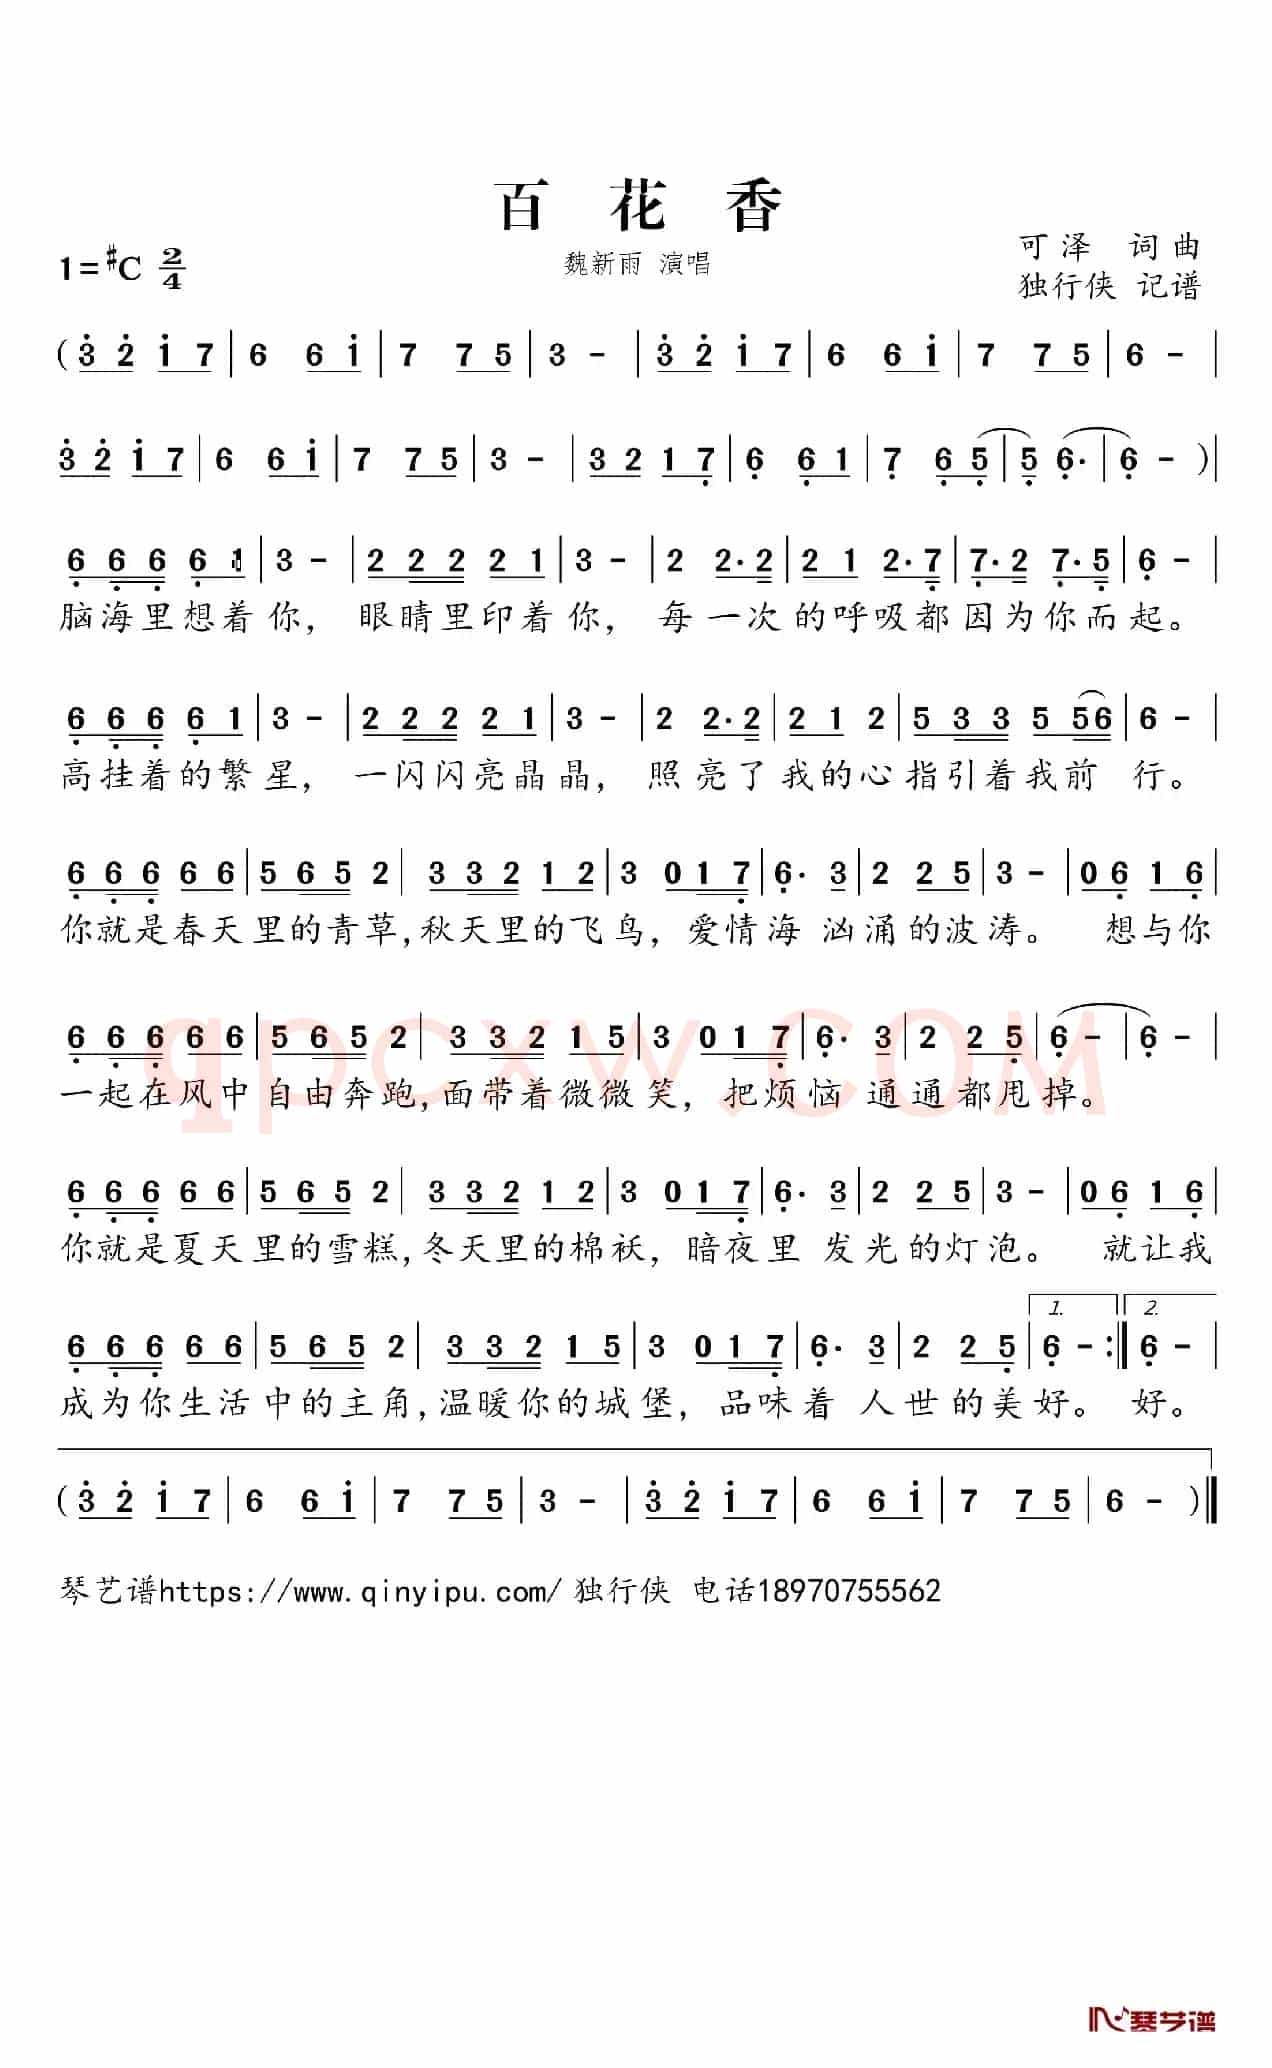 百花香
1=#C 2/4
魏新雨 演唱
可泽 词曲
独行侠 记谱
(3̇ 2̇ 1̇ 7 | 6 6 1̇ | 7 7 5 | 3 - | 3̇ 2̇ 1̇ 7 | 6 6 1̇ | 7 7 5 | 6 - |
3̇ 2̇ 1̇ 7 | 6 6 1̇ | 7 7 5 | 3 - | 3 2 1 7̣ | 6̣ 6̣ 1 | 7̣ 6̣ 5̣ | 5̣ 6̣· | 6̣ - )|
6̣ 6̣ 6̣ 6̣ 1 | 3 - | 2 2 2 2 1 | 3 - | 2 2·2 | 2 1 2·7̣ | 7̣·2 7̣·5̣ | 6̣ - |
脑海里想着你, 眼睛里印着你, 每一次的呼吸都因为你而起。
6̣ 6̣ 6̣ 6̣ 1 | 3 - | 2 2 2 2 1 | 3 - | 2 2·2 | 2 1 2 | 5 3 3 5 56 | 6 - |
高挂着的繁星, 一闪闪亮晶晶, 照亮了我的心指引着我前 行。
6̣ 6̣ 6̣ 6 6 | 5 6 5 2 | 3 3 2 1 2 | 3 0 1 7̣ | 6̣· 3 | 2 2 5 | 3 - | 0 6̣ 1 6̣ |
你就是春天里的青草,秋天里的飞鸟, 爱情海 汹涌的波涛。 想与你
6̣ 6̣ 6̣ 6 6 | 5 6 5 2 | 3 3 2 1 5 | 3 0 1 7̣ | 6̣· 3 | 2 2 5̣ | 6̣ - | 6̣ - |
一起在风中自由奔跑,面带着微微笑, 把烦恼 通通都甩掉。
6̣ 6̣ 6̣ 6 6 | 5 6 5 2 | 3 3 2 1 2 | 3 0 1 7̣ | 6̣· 3 | 2 2 5 | 3 - | 0 6̣ 1 6̣ |
你就是夏天里的雪糕,冬天里的棉袄, 暗夜里 发光的灯泡。 就让我
1. 2.
6̣ 6̣ 6̣ 6 6 | 5 6 5 2 | 3 3 2 1 5 | 3 0 1 7̣ | 6̣· 3 | 2 2 5̣ | 6̣ - :| 6̣ - |
成为你生活中的主角,温暖你的城堡, 品味着 人世的美好。 好。
(3̇ 2̇ 1̇ 7 | 6 6 1̇ | 7 7 5 | 3 - | 3̇ 2̇ 1̇ 7 | 6 6 1̇ | 7 7 5 | 6 - )‖
qpcxw.COM
琴艺谱https://www.qinyipu.com/独行侠 电话18970755562
琴艺谱